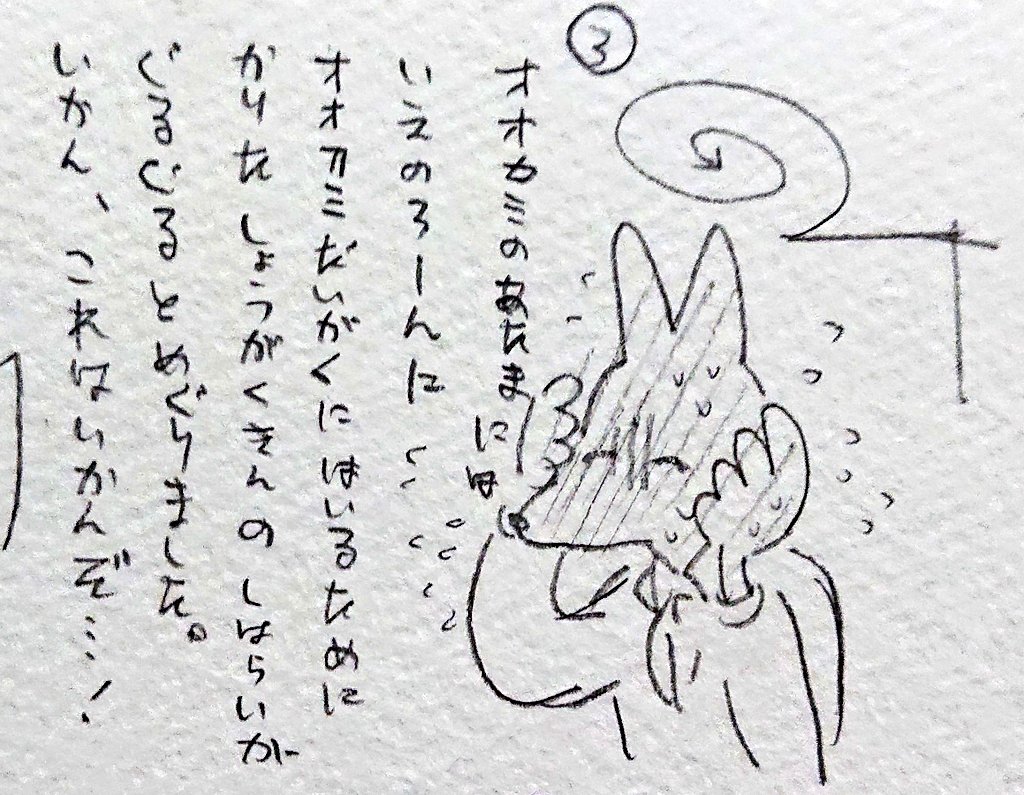 ③
オオカミのあたまには
いえのろーんに
オオカミだいがくにはいるために
かりたしょうがくきんのしはらいが
ぐるぐるとめぐりました。
いかん、これはいかんぞ…!